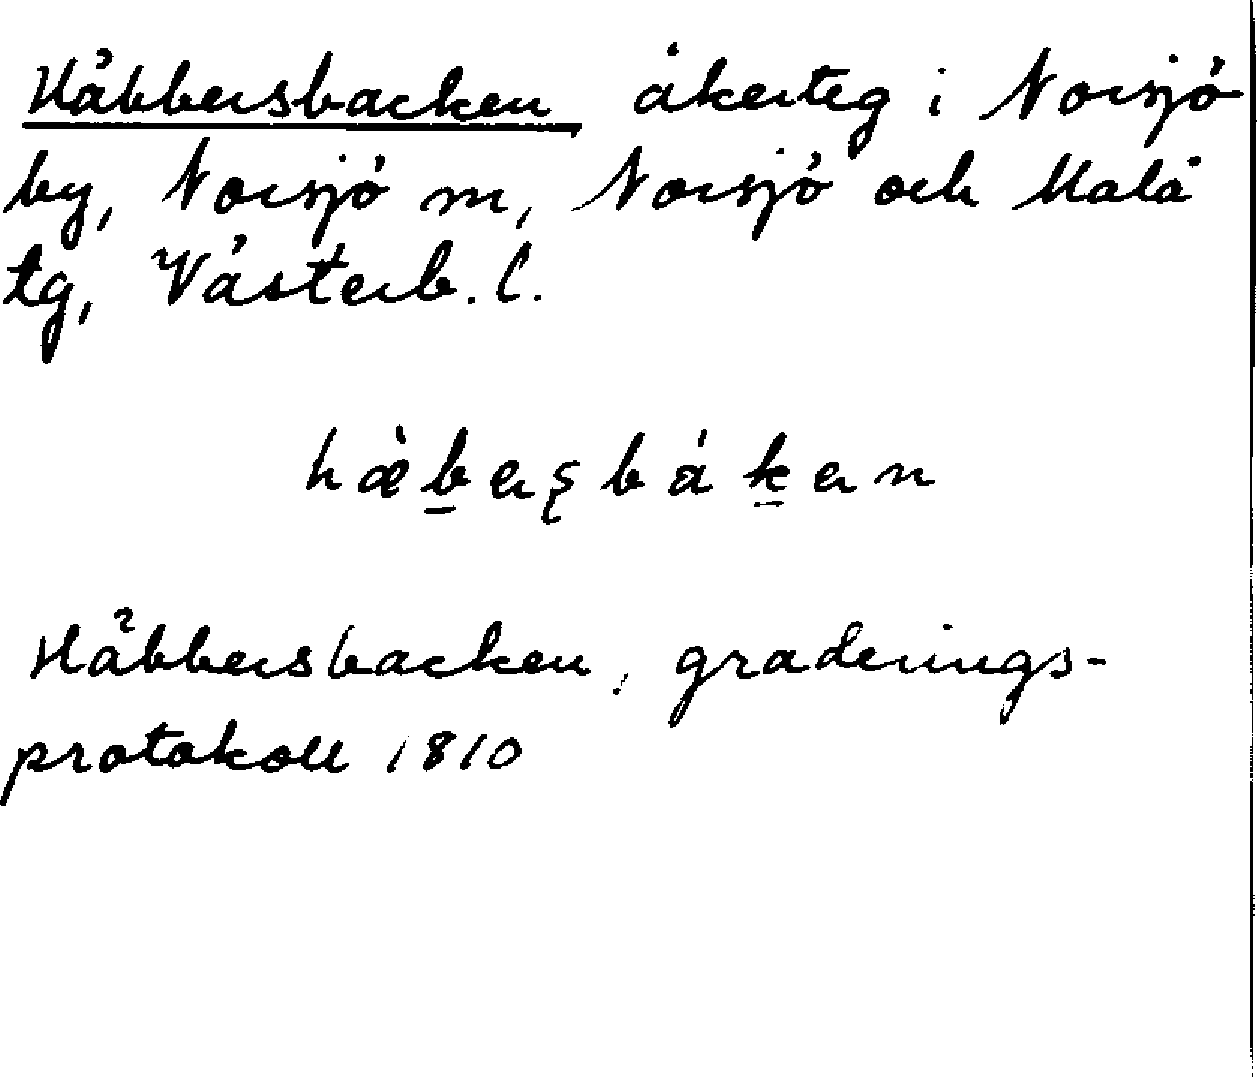 Häbbersbacken åkerteg i Norsjö
by, Norsjö sn, Norsjö och Malå
tg, Västerb. l.
hæ̀b̲ersbák̲en
Häbbersbacken, graderings-
protokoll 1810